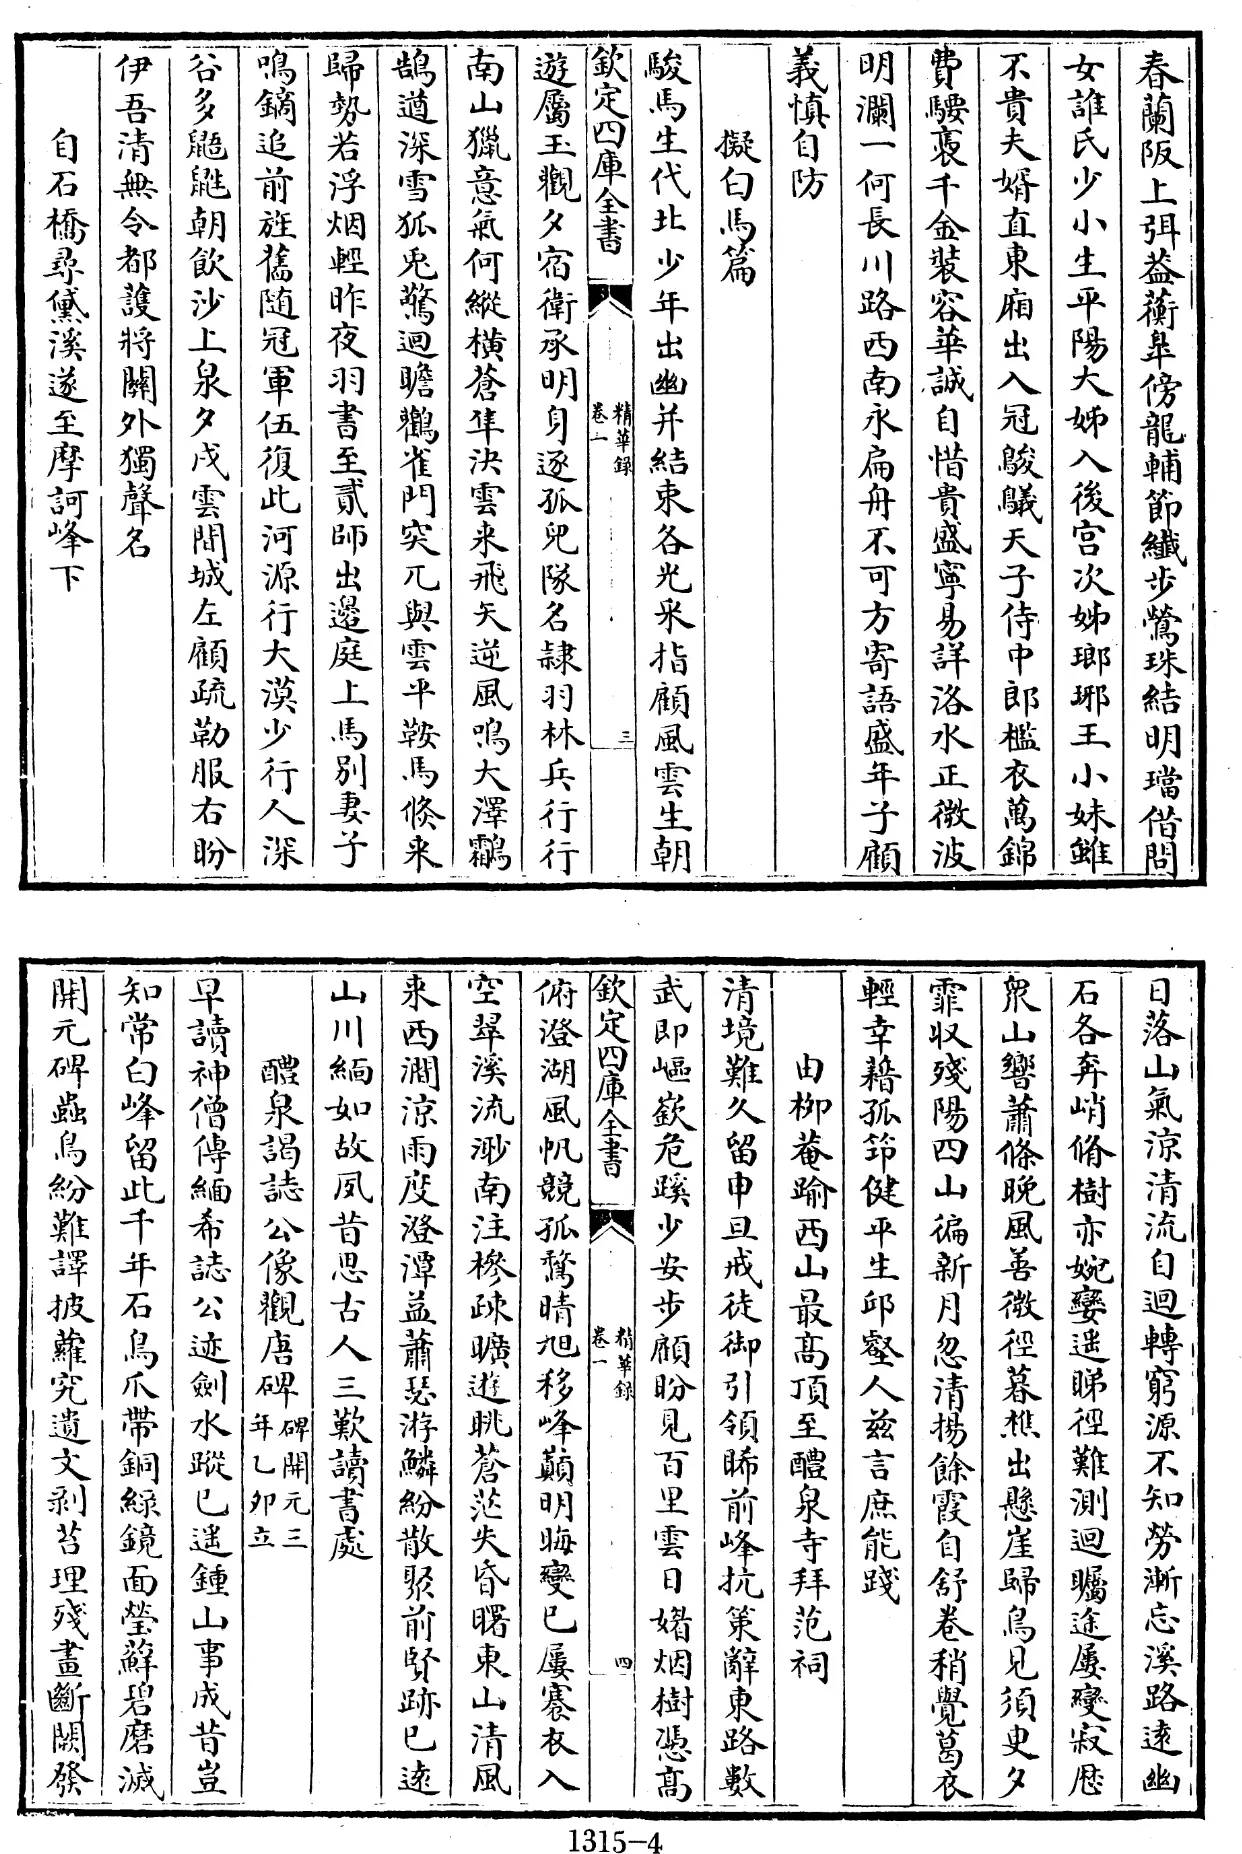 春蘭阪上弭葢蘅臯傍龍輔節纎步鶯珠結明璫借問
女誰氏少小生平陽大姊入後宫次姊瑯琊王小妹雖
不貴夫婿直東廂出入冠鵔鸃天子侍中郎襤衣萬錦
費騕褭千金裝容華誠自惜貴盛寧易詳洛水正微波
明瀾一何長川路西南永扁舟不可方寄語盛年子顧
義慎自防
擬白馬篇
駿馬生代北少年出幽并結束各光采指顧風雲生朝
欽定四庫全書
精華録
卷一
三
遊屬玉觀夕宿衛承明身逐孤兒隊名隷羽林兵行行
南山獵意氣何縱橫蒼隼決雲来飛矢逆風鳴大澤鸘
鵠道深雪狐兎驚迴瞻鸛雀門突兀與雲平鞍馬倐来
歸勢若浮烟輕昨夜羽書至貳師出邉庭上馬别妻子
鳴鏑追前旌舊随冠軍伍復此河源行大漠少行人深
谷多鼯鼪朝飲沙上泉夕戍雲間城左顧疏勒服右盼
伊吾清無令都護將關外獨聲名
自石橋尋黛溪遂至摩訶峰下
日落山氣涼清流自迴轉窮源不知勞漸忘溪路逺幽
石各奔峭脩樹亦婉孌遥睇徑難測迴矚途屢變寂歴
衆山響蕭條晩風善微徑暮樵出懸崖歸鳥見須臾夕
霏収殘陽四山徧新月忽清揚餘霞自舒卷稍覺葛衣
輕幸藉孤筇健平生邱壑人兹言庶能踐
由柳菴踰西山最髙頂至醴泉寺拜范祠
清境難久留申旦戒徒御引領睎前峰抗策辭東路數
武即嶇嶔危蹊少安步顧盼見百里雲日媚烟樹憑髙
欽定四庫全書
精華録
卷一
四
俯澄湖風帆競孤騖晴旭移峰巔明晦變已屢褰衣入
空翠溪流渺南注椮疎曠遊眺蒼茫失昏曙東山清風
来西澗涼雨度澄潭益蕭瑟游鱗紛散聚前賢跡已逺
山川緬如故夙昔思古人三歎讀書處
醴泉謁誌公像觀唐碑碑開元三年乙卯立
早讀神僧傳緬希誌公迹劍水蹤已遥鍾山事成昔豈
知常白峰留此千年石鳥爪帶銅綠鏡面瑩蘚碧磨滅
開元碑蟲鳥紛難譯披蘿究遺文剥苔理殘畫斷闕發
1315-4